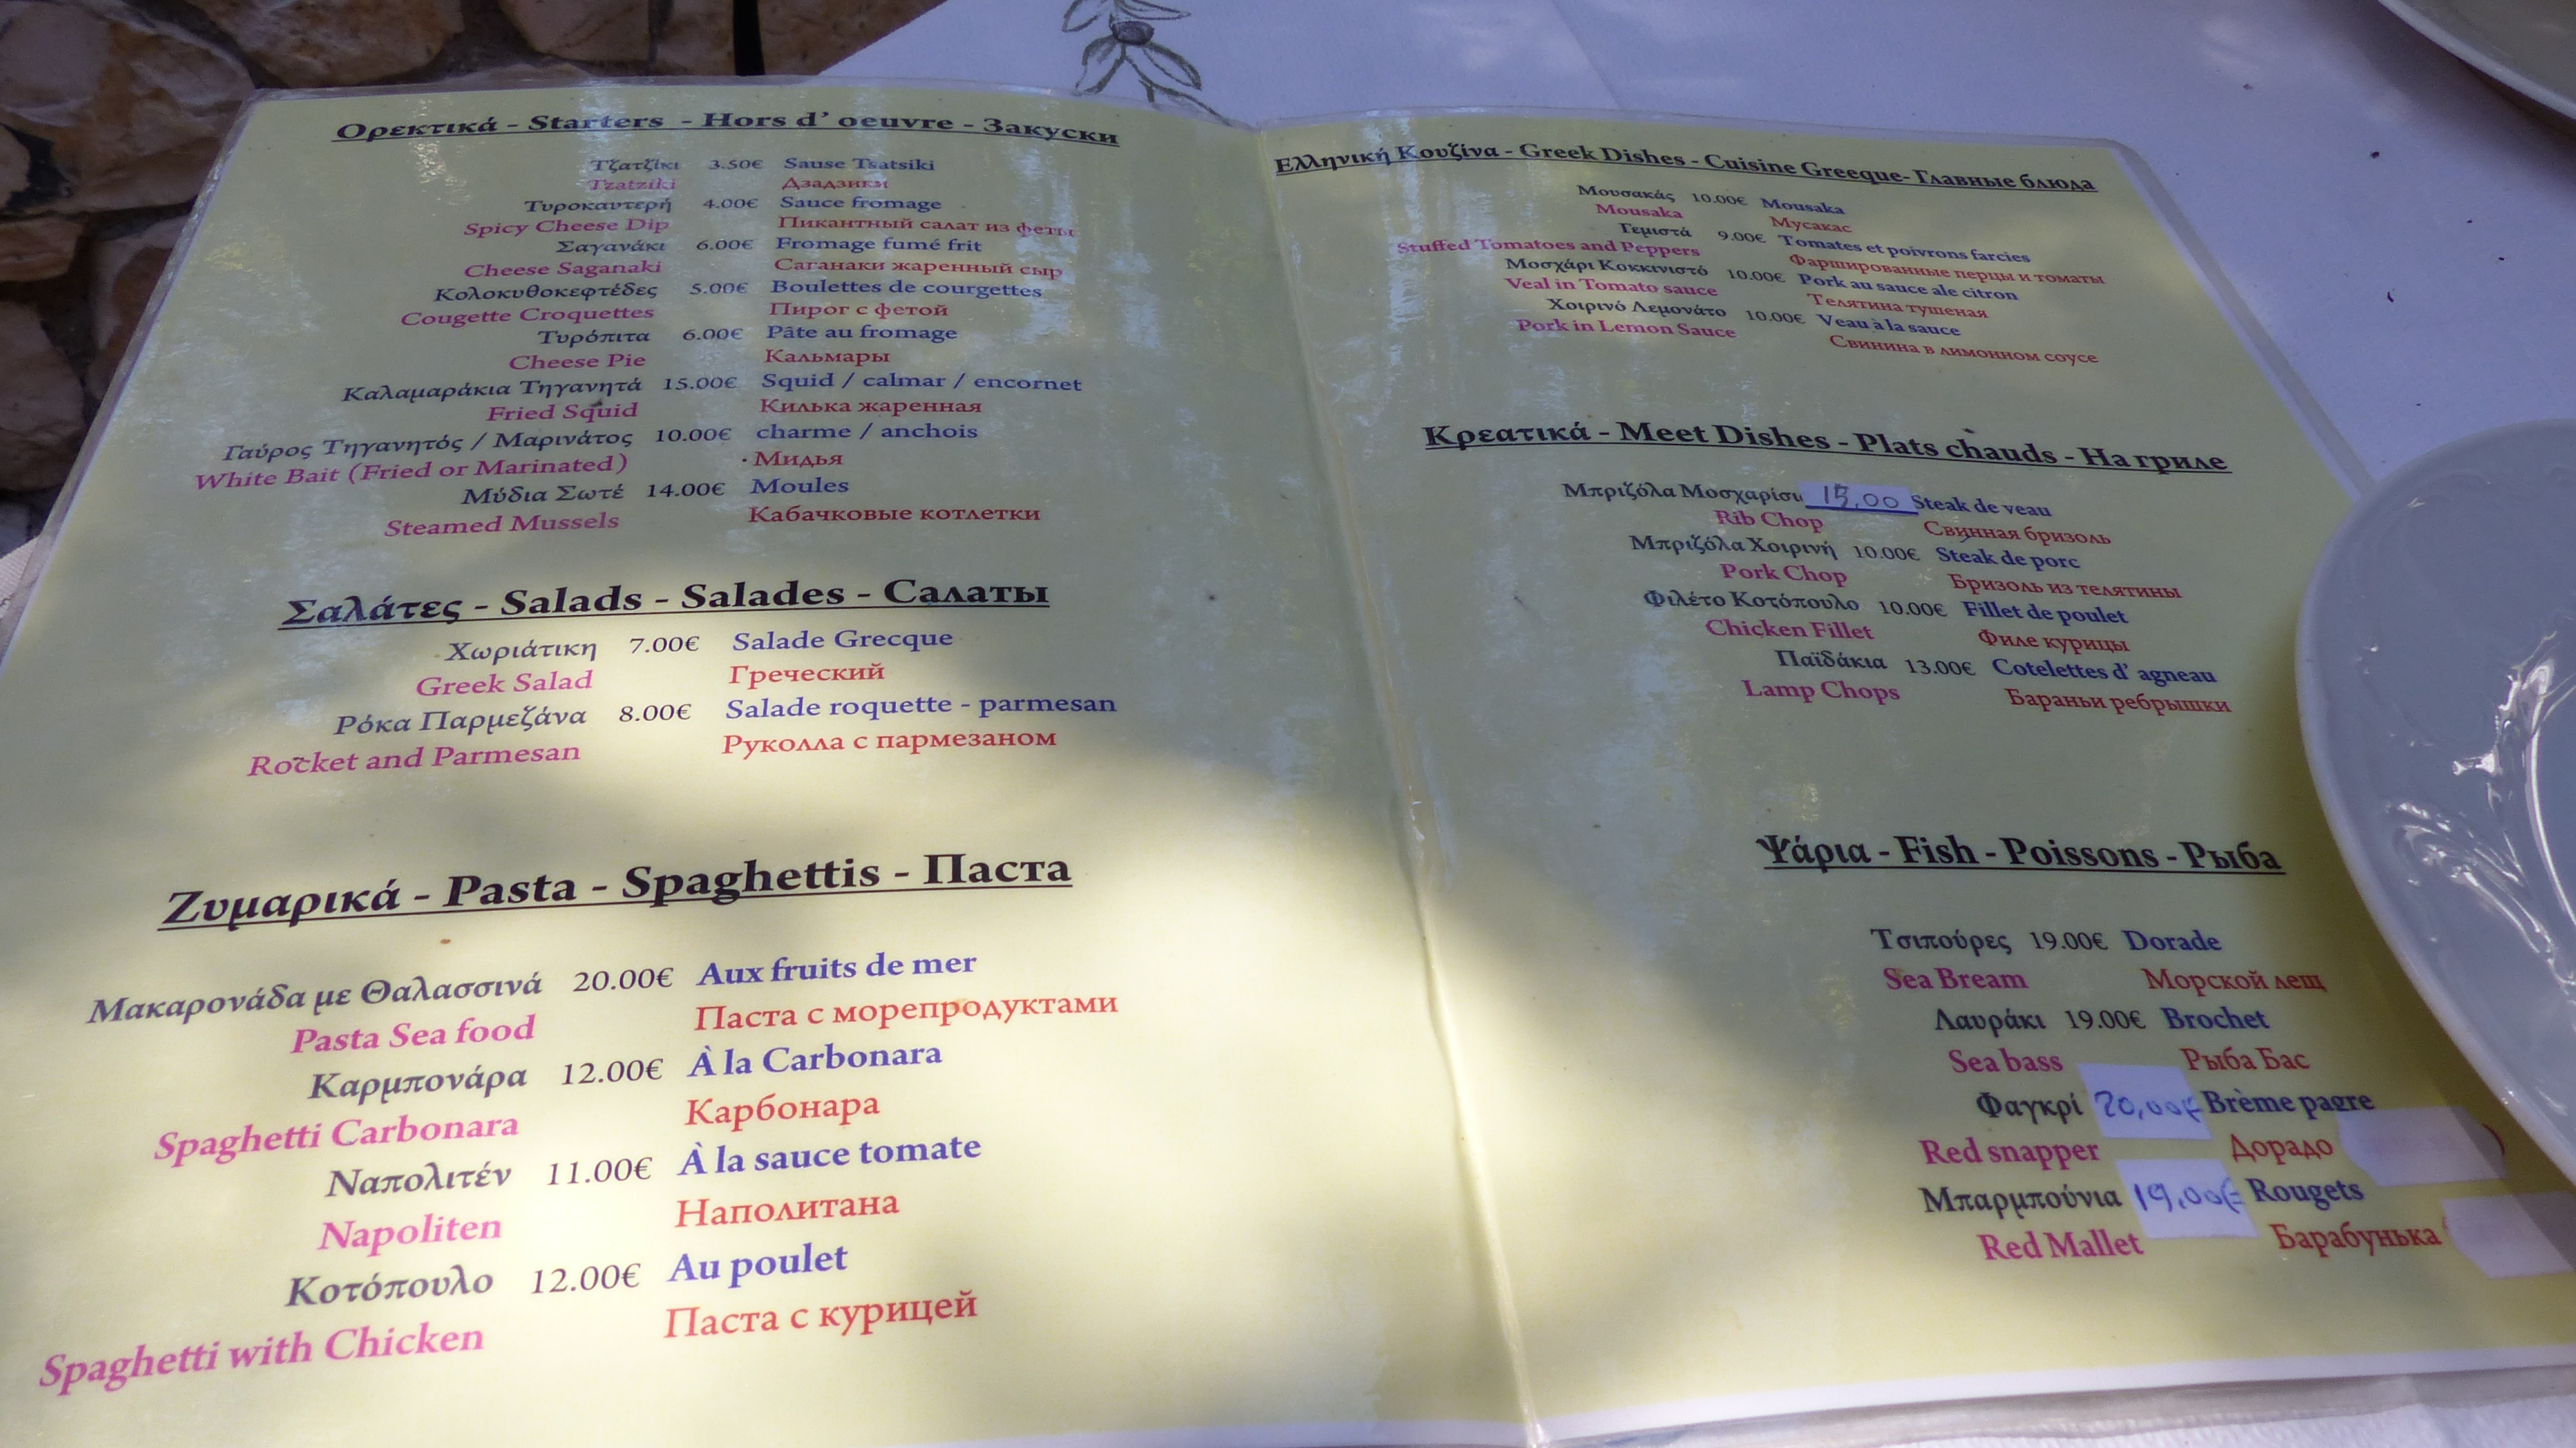 Ορεκτικά - Starters - Hors d' oeuvre - Закуски
Τζατζίκι 3.50€ Sause Tsatsiki
Tzatziki Дзадзики
Τυροκαυτερή 4.00€ Sauce fromage
Spicy Cheese Dip Пикантный салат из феты
Σαγανάκι 6.00€ Fromage fumé frit
Cheese Saganaki Саганаки жаренный сыр
Κολοκυθοκεφτέδες 5.00€ Boulettes de courgettes
Cougette Croquettes Пирог с фетой
Τυρόπιτα 6.00€ Pâte au fromage
Cheese Pie Кальмары
Καλαμαράκια Τηγανητά 15.00€ Squid / calmar / encornet
Fried Squid Килька жаренная
Γαύρος Τηγανητός / Μαρινάτος 10.00€ charme / anchois
White Bait (Fried or Marinated) Мидья
Μύδια Σωτέ 14.00€ Moules
Steamed Mussels Кабачковые котлетки
Σαλάτες - Salads - Salades - Салаты
Χωριάτικη 7.00€ Salade Grecque
Greek Salad Греческий
Ρόκα Παρμεζάνα 8.00€ Salade roquette - parmesan
Rocket and Parmesan Руколла с пармезаном
Ζυμαρικά - Pasta - Spaghettis - Паста
Μακαρονάδα με Θαλασσινά 20.00€ Aux fruits de mer
Pasta Sea food Паста с морепродуктами
Καρμπονάρα 12.00€ À la Carbonara
Spaghetti Carbonara Карбонара
Ναπολιτέν 11.00€ À la sauce tomate
Napoliten Наполитана
Κοτόπουλο 12.00€ Au poulet
Spaghetti with Chicken Паста с курицей
Ελληνική Κουζίνα - Greek Dishes - Cuisine Greeque- Главные блюда
Μουσακάς 10.00€ Mousaka
Mousaka Мусакас
Γεμιστά 9.00€ Tomates et poivrons farcies
Stuffed Tomatoes and Peppers Фаршированные перцы и томаты
Μοσχάρι Κοκκινιστό 10.00€ Pork au sauce ale citron
Veal in Tomato sauce Телятина тушеная
Χοιρινό Λεμονάτο 10.00€ Veau à la sauce
Pork in Lemon Sauce Свинина в лимонном соусе
Κρεατικά - Meet Dishes - Plats chauds - На гриле
Μπριζόλα Μοσχαρίσι 15,00 Steak de veau
Rib Chop Свинная бризоль
Μπριζόλα Χοιρινή 10.00€ Steak de porc
Pork Chop Бризоль из телятины
Φιλέτο Κοτόπουλο 10.00€ Fillet de poulet
Chicken Fillet Филе курицы
Παϊδάκια 13.00€ Cotelettes d' agneau
Lamp Chops Бараньи ребрышки
Ψάρια - Fish - Poissons - Рыба
Τσιπούρες 19.00€ Dorade
Sea Bream Морской лещ
Λαυράκι 19.00€ Brochet
Sea bass Рыба Бас
Φαγκρί 20,00€ Brème pagre
Red snapper Дорадо
Μπαρμπούνια 19,00€ Rougets
Red Mallet Барабунька